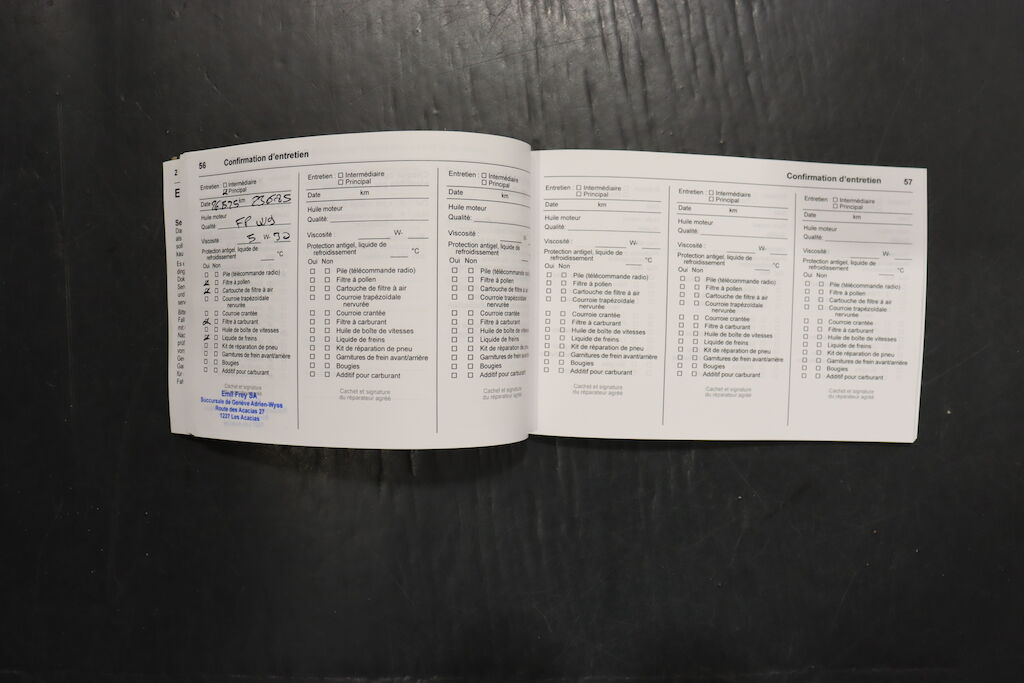 56 Confirmation d'entretien
Entretien : ☐ Intermédiaire
☒ Principal
Date km
Huile moteur
Qualité :
Viscosité : 5 W- 30
Protection antigel, liquide de
refroidissement °C
Oui Non
Pile (télécommande radio)
Filtre à pollen
Cartouche de filtre à air
Courroie trapézoïdale
nervurée
Courroie crantée
Filtre à carburant
Huile de boîte de vitesses
Liquide de freins
Kit de réparation de pneu
Garnitures de frein avant/arrière
Bougies
Additif pour carburant
Cachet et signature
Emil Frey SA
Succursale de Genève Adrien-Wyss
Route des Acacias 27
1227 Les Acacias
Entretien : ☐ Intermédiaire
☐ Principal
Date km
Huile moteur
Qualité:
Viscosité : W-
Protection antigel, liquide de
refroidissement °C
Oui Non
☐ ☐ Pile (télécommande radio)
☐ ☐ Filtre à pollen
☐ ☐ Cartouche de filtre à air
☐ ☐ Courroie trapézoïdale
nervurée
☐ ☐ Courroie crantée
☐ ☐ Filtre à carburant
☐ ☐ Huile de boîte de vitesses
☐ ☐ Liquide de freins
☐ ☐ Kit de réparation de pneu
☐ ☐ Garnitures de frein avant/arrière
☐ ☐ Bougies
☐ ☐ Additif pour carburant
Cachet et signature
du réparateur agréé
Entretien : ☐ Intermédiaire
☐ Principal
Date km
Huile moteur
Qualité:
Viscosité :
Protection antigel, liquide de
refroidissement
Oui Non
☐ ☐ Pile (télécommande radio)
☐ ☐ Filtre à pollen
☐ ☐ Cartouche de filtre à air
☐ ☐ Courroie trapézoïdale
nervurée
☐ ☐ Courroie crantée
☐ ☐ Filtre à carburant
☐ ☐ Huile de boîte de vitesses
☐ ☐ Liquide de freins
☐ ☐ Kit de réparation de pneu
☐ ☐ Garnitures de frein
☐ ☐ Bougies
☐ ☐ Additif pour carburant
Cachet et signature
du réparateur agréé
Confirmation d'entretien 57
Entretien : ☐ Intermédiaire
☐ Principal
Date km
Huile moteur
Qualité:
Viscosité : W-
Protection antigel, liquide de
refroidissement °C
Oui Non
☐ ☐ Pile (télécommande radio)
☐ ☐ Filtre à pollen
☐ ☐ Cartouche de filtre à air
☐ ☐ Courroie trapézoïdale
nervurée
☐ ☐ Courroie crantée
☐ ☐ Filtre à carburant
☐ ☐ Huile de boîte de vitesses
☐ ☐ Liquide de freins
☐ ☐ Kit de réparation de pneu
☐ ☐ Garnitures de frein avant/arrière
☐ ☐ Bougies
☐ ☐ Additif pour carburant
Cachet et signature
du réparateur agréé
Entretien : ☐ Intermédiaire
☐ Principal
Date km
Huile moteur
Qualité:
Viscosité : W-
Protection antigel, liquide de
refroidissement °C
Oui Non
☐ ☐ Pile (télécommande radio)
☐ ☐ Filtre à pollen
☐ ☐ Cartouche de filtre à air
☐ ☐ Courroie trapézoïdale
nervurée
☐ ☐ Courroie crantée
☐ ☐ Filtre à carburant
☐ ☐ Huile de boîte de vitesses
☐ ☐ Liquide de freins
☐ ☐ Kit de réparation de pneu
☐ ☐ Garnitures de frein avant/arrière
☐ ☐ Bougies
☐ ☐ Additif pour carburant
Cachet et signature
du réparateur agréé
Entretien : ☐ Intermédiaire
☐ Principal
Date km
Huile moteur
Qualité:
Viscosité : W-
Protection antigel, liquide de
refroidissement °C
Oui Non
☐ ☐ Pile (télécommande radio)
☐ ☐ Filtre à pollen
☐ ☐ Cartouche de filtre à air
☐ ☐ Courroie trapézoïdale
nervurée
☐ ☐ Courroie crantée
☐ ☐ Filtre à carburant
☐ ☐ Huile de boîte de vitesses
☐ ☐ Liquide de freins
☐ ☐ Kit de réparation de pneu
☐ ☐ Garnitures de frein avant/arrière
☐ ☐ Bougies
☐ ☐ Additif pour carburant
Cachet et signature
du réparateur agréé